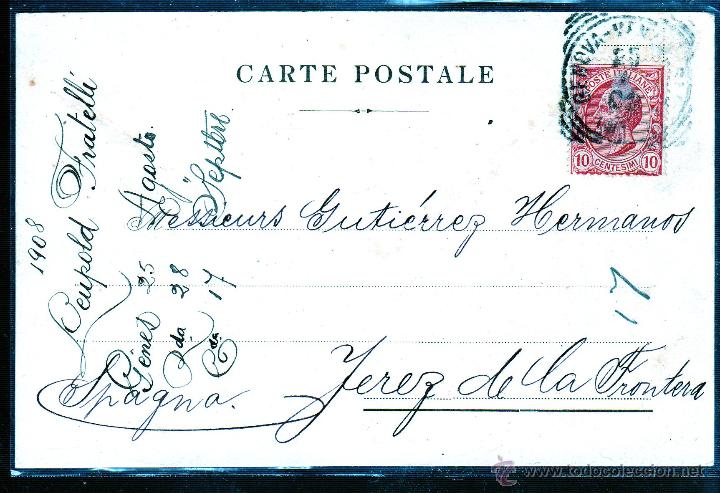 CARTE POSTALE
GENOVA
POSTE ITALIANE
10 CENTESIMI 10
Messieurs Gutiérrez Hermanos
17
Jerez de la Frontera
Spagna.
1908
Leupold Fratelli
Gênes 25 Agosto.
28 "
17 Septbre
todocoleccion